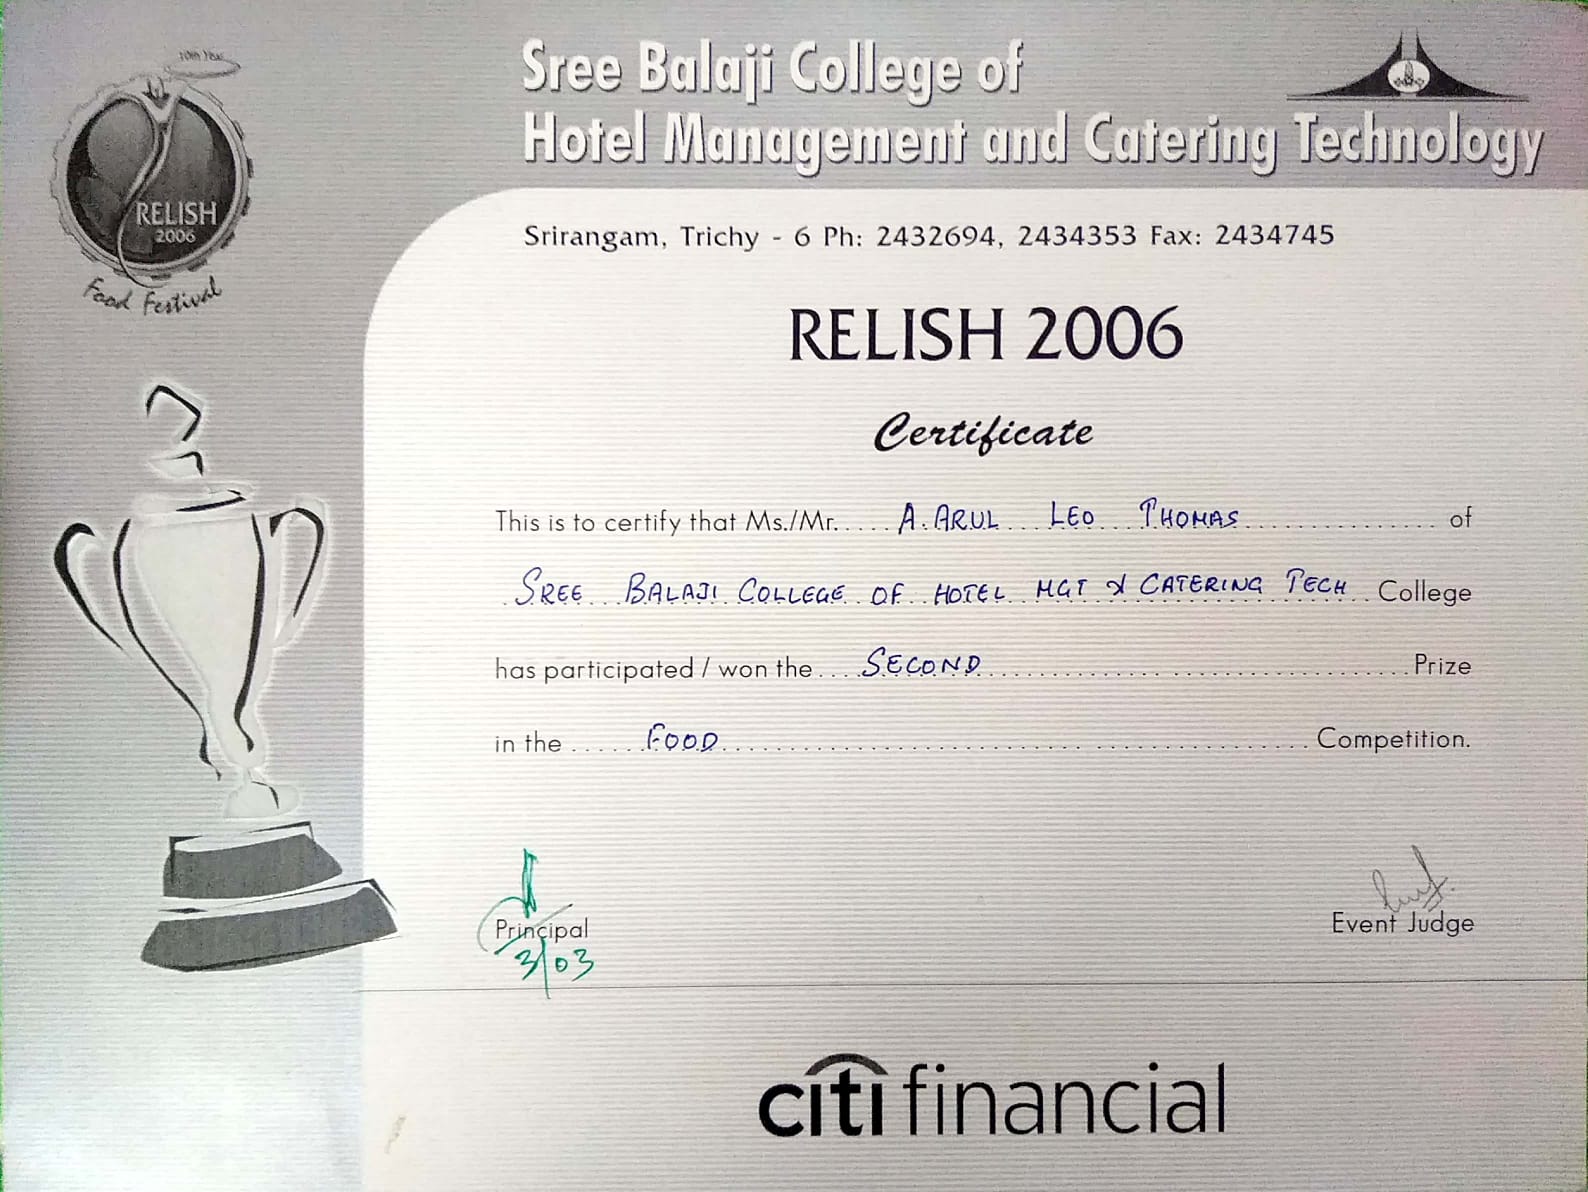 10th Year
Sree Balaji College of
Hotel Management and Catering Technology
RELISH
2006
Food Festival
Srirangam, Trichy - 6 Ph: 2432694, 2434353 Fax: 2434745
RELISH 2006
Certificate
This is to certify that Ms./Mr. .... A. ARUL LEO THOMAS ............... of
SREE BALAJI COLLEGE OF HOTEL MGT & CATERING TECH College
has participated / won the .... SECOND ............... Prize
in the ...... FOOD ............... Competition.
Principal
3/03
Event Judge
citi financial